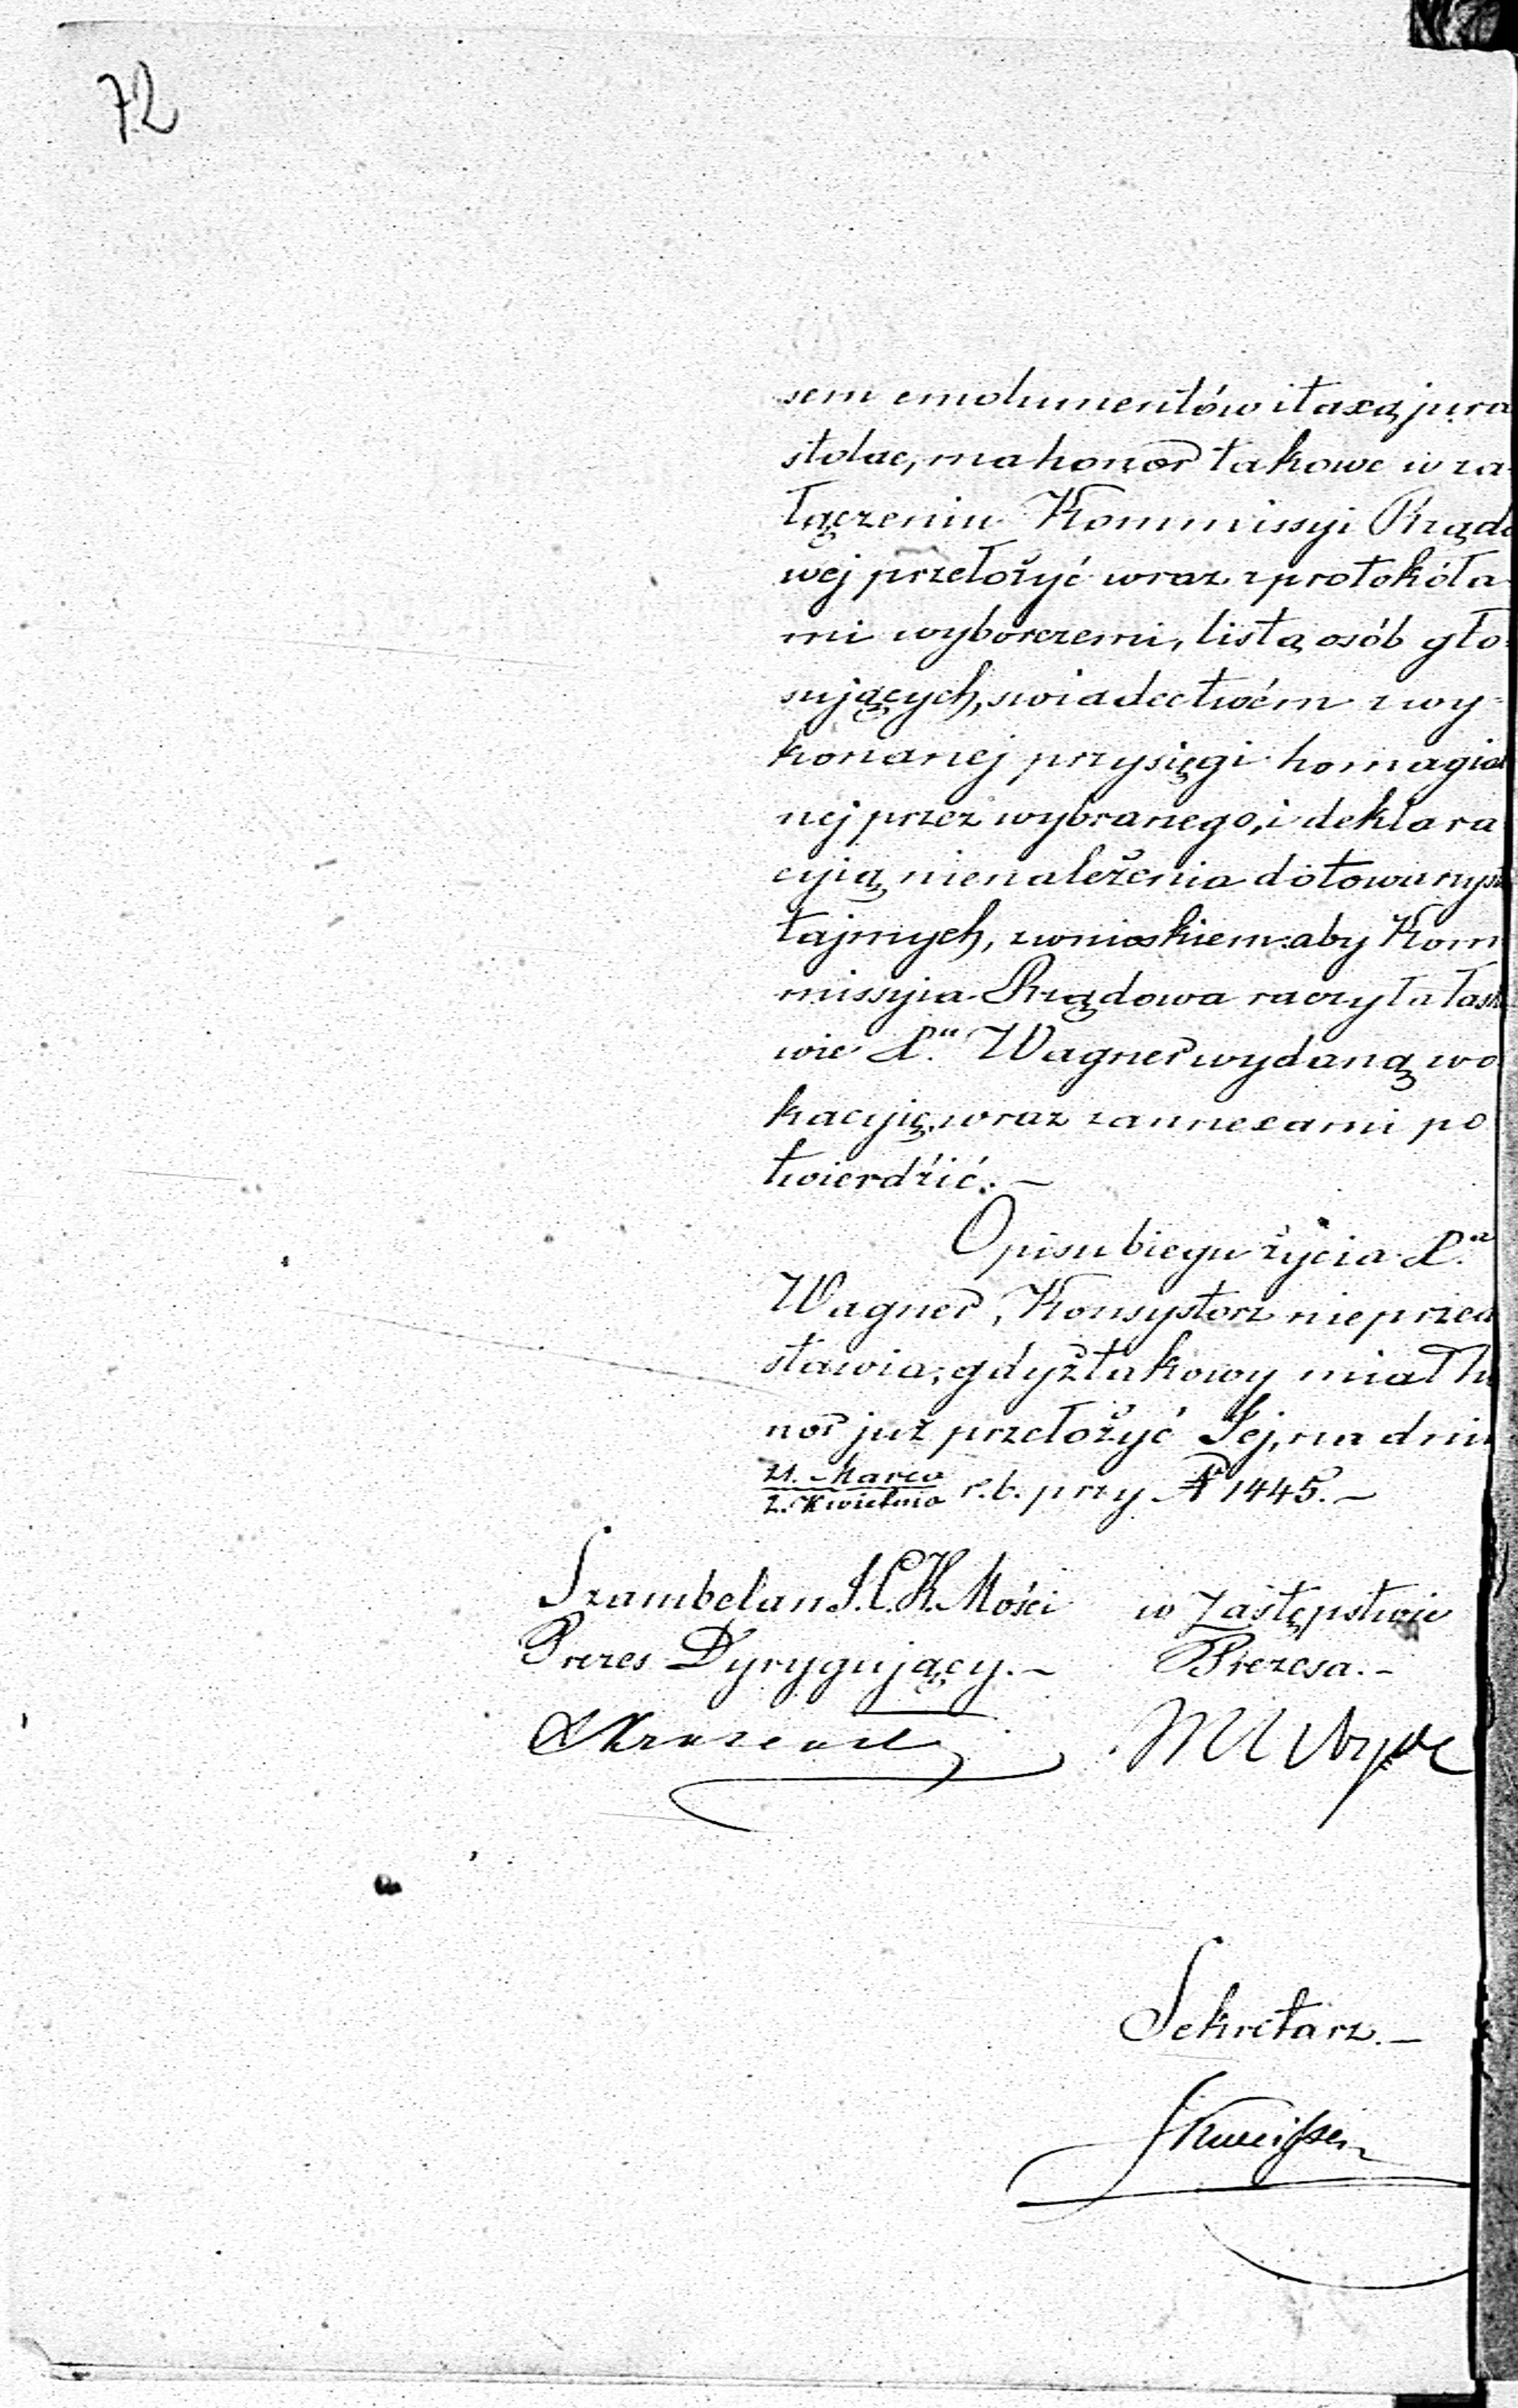 72
sem emolumentów i taxą jura
stolae, ma honor takowe w za-
łączeniu Kommissyi Rządo
wej przełożyć wraz z protokóła-
mi wyborczemi, listą osób gło-
sujących, swiadectwém z wy-
konanej przysięgi homagial
nej przez wybranego, i deklara
cyią nienależenia do towarzys
tajnych, z wnioskiem: aby Kom
missyia Rządowa raczyła łask
wie X.a Wagner wydaną wo
kacyię wraz z annexami po
twierdzić. —
Opisu biegu życia X.a
Wagner, Konsystorz nie przed
stawia; gdyż takowy miał ho
nor już przełożyć Jej, na dniu
21. Marca
2. Kwietnia r. b. przy № 1445. —
Szambelan J. C. K. Mości
Prezes Dyrygujący. —
w Zastępstwie
Prezesa. —
Sekretarz. —